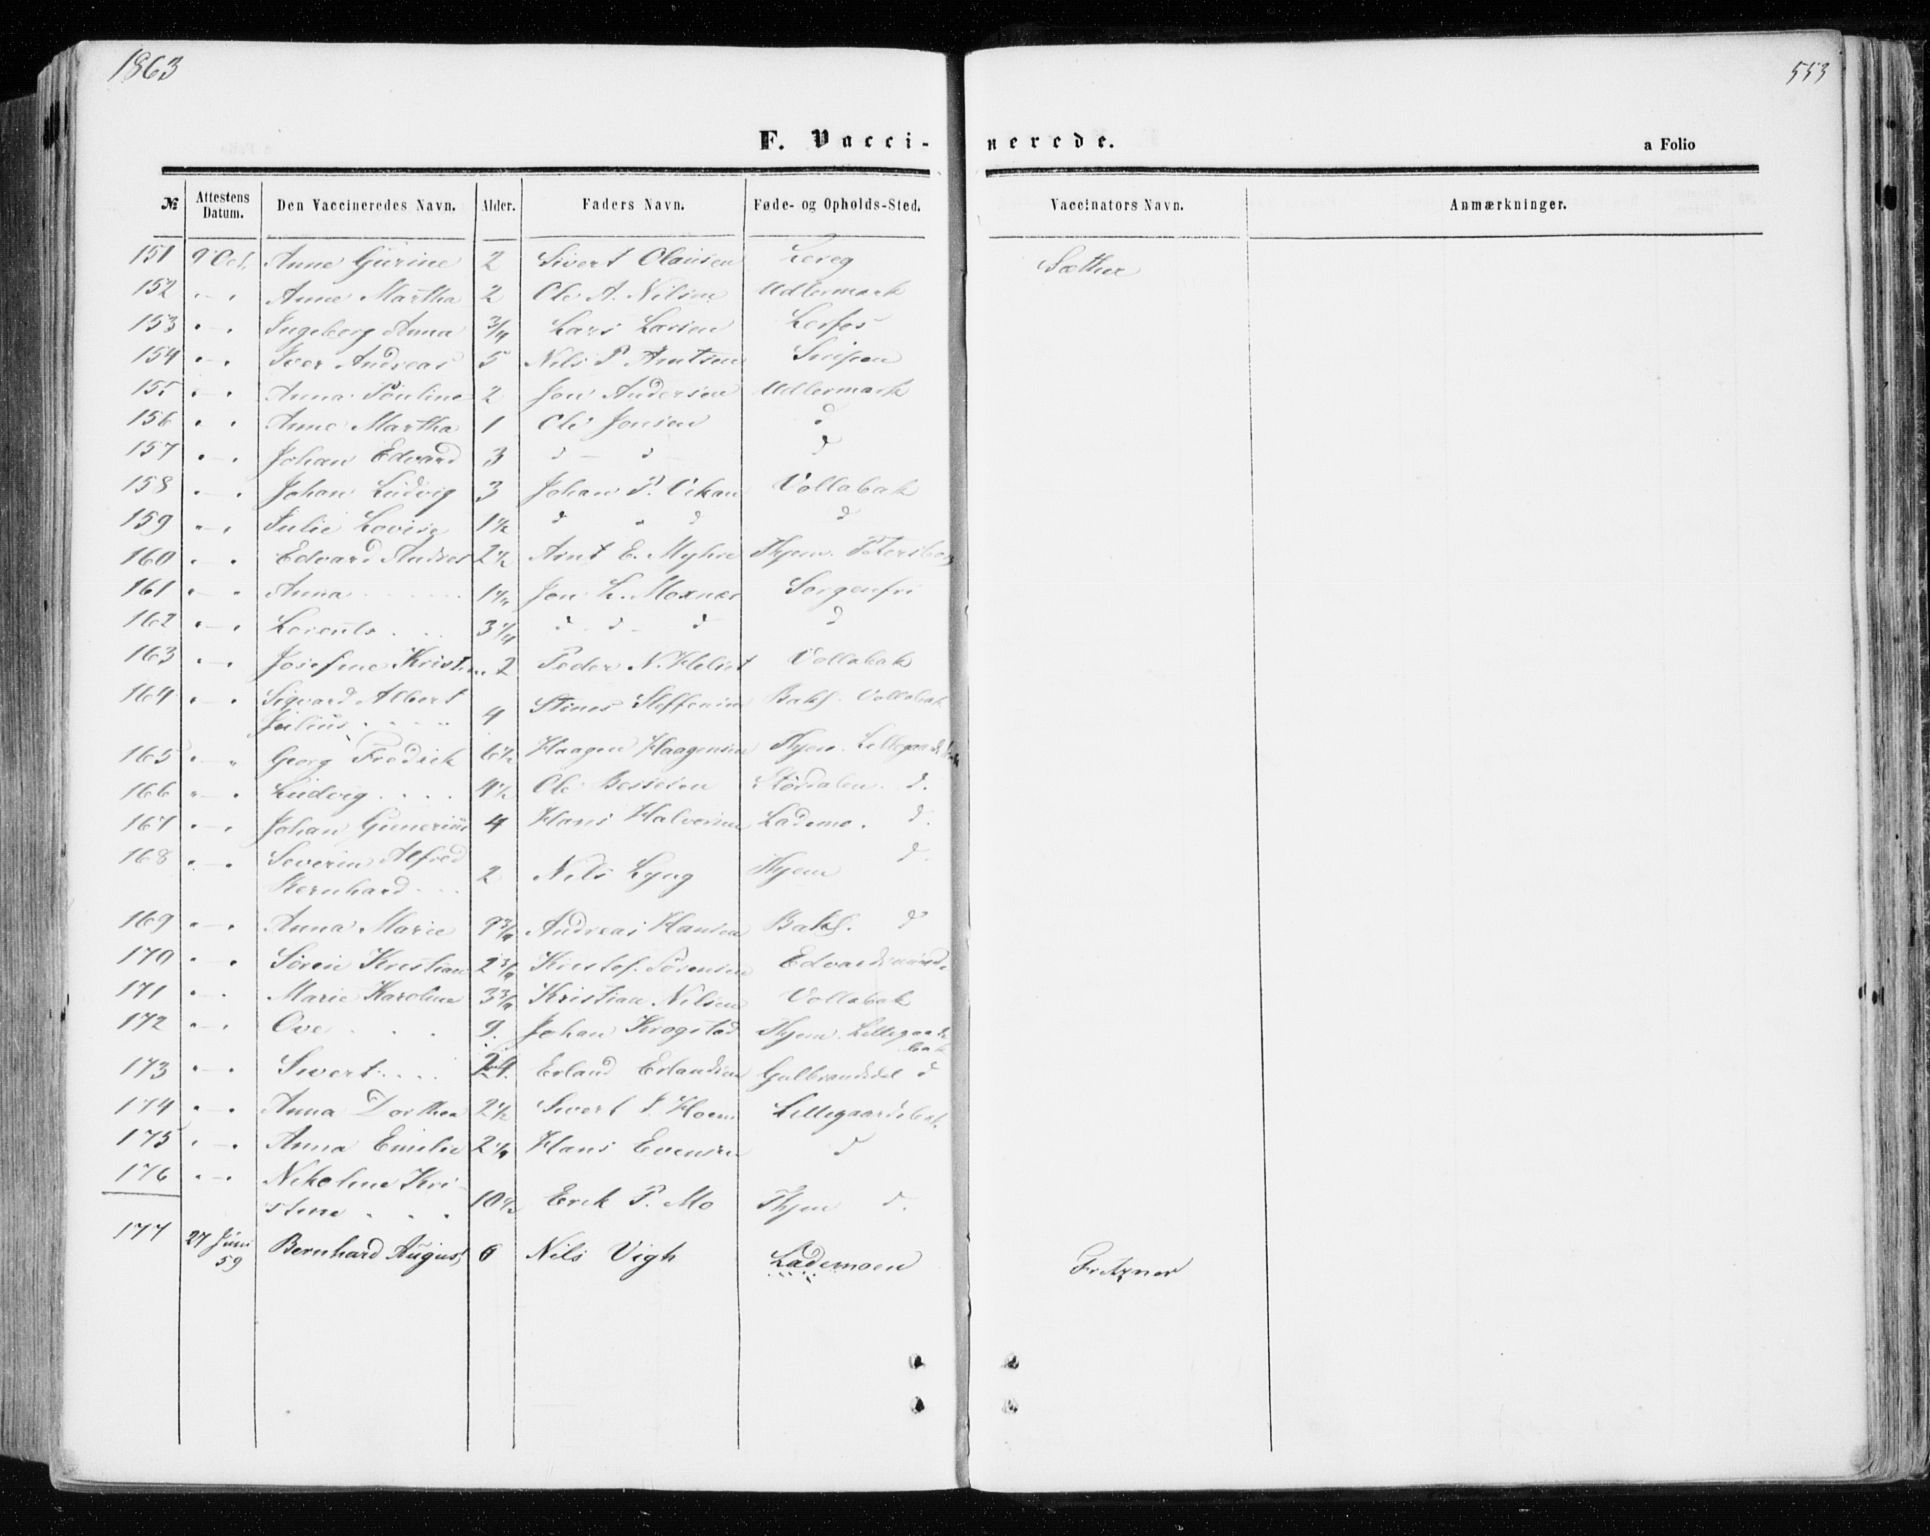 1863
553
F. Vacci-nerede.
a Folio
№ Attestens Datum. Den Vaccineredes Navn. Alder. Faders Navn. Føde- og Opholds-Sted. Vaccinators Navn. Anmærkninger.
151 9 Oct. Anne Gurine 2 Sivert Olausen Sæther
152 " — " Anne Martha 2 Ole A. Nilsen
153 " — " Ingeborg Anna 3/4 Lars Larsen Lerfos
154 " — " Iver Andreas 5 Nils P. Arntsen
155 " — " Anna Pauline 2 Jon Andersen
156 " " Anne Martha 1 Ole Jonsen d
157 " — " Johan Edvard 3 d — d — d
158 " — " Johan Ludvig 3 Johan P. Vikan Vollabak
159 " — " Julie Lovise 1 1/2 d " d d
160 " — " Edvard Andreas 2 1/2 Arnt E. Myhre Thjem. Petersborg
161 " — " Anna 1 1/4 Jon L. Moxnes Sorgenfri
162 " — " Lorents 3 1/4 d — d — d d
163 " — " Josefine Kristine 2 Peder N. Vollabak
164 " — " Sigvard Albert
Julius 4 Steffensen Bakl. Vollabak
165 " — " Georg Fredrik 6 1/2 Haagen Haagensen Thjem. Lillegaardsbak
166 " — " Ludvig 4 1/2 Ole Bessesen Størdalen. d.
167 " — " Johan Gunerius 4 Hans Halvorsen Lademo. d.
168 " — " Severin Alfred
Bernhard 2 Nils Lyng Thjem d.
169 " — " Anna Marie 9 3/4 Andreas Hansen Bakl. d
170 " — " Søren Kristian 2 3/4 Kristof. Sørensen
171 " — " Marie Karoline 3 3/4 Kristian Nilsen Vollabak
172 " — " Ove 9. Johan Krogstad Thjem. Lillegaards-
bak
173 " — " Sivert Erland Erlandsen d
174 " — " Anna Dorthea 2 1/2 Sivert P. Hoem Lillegaardsbak.
175 " — " Anna Emilie 2 1/4 Hans Evensen d
176 " — " Nikoline Kri-
stine 10 1/2 Erik P. Mo Thjem d.
177 27 Juni 59 Bernhard August 6 Nils Vigh Lademoen Fritzner